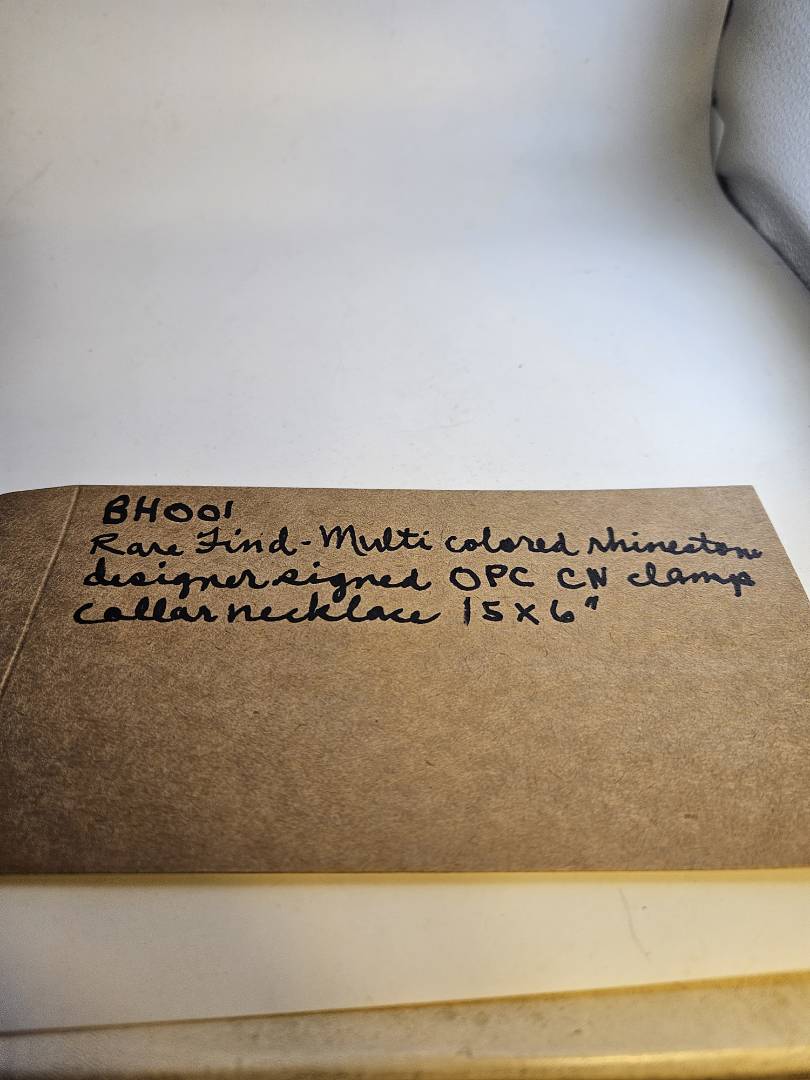 BH001
Rare Find - Multi colored rhinestone
designer signed OPC CN clamp
collar necklace 15 x 6"